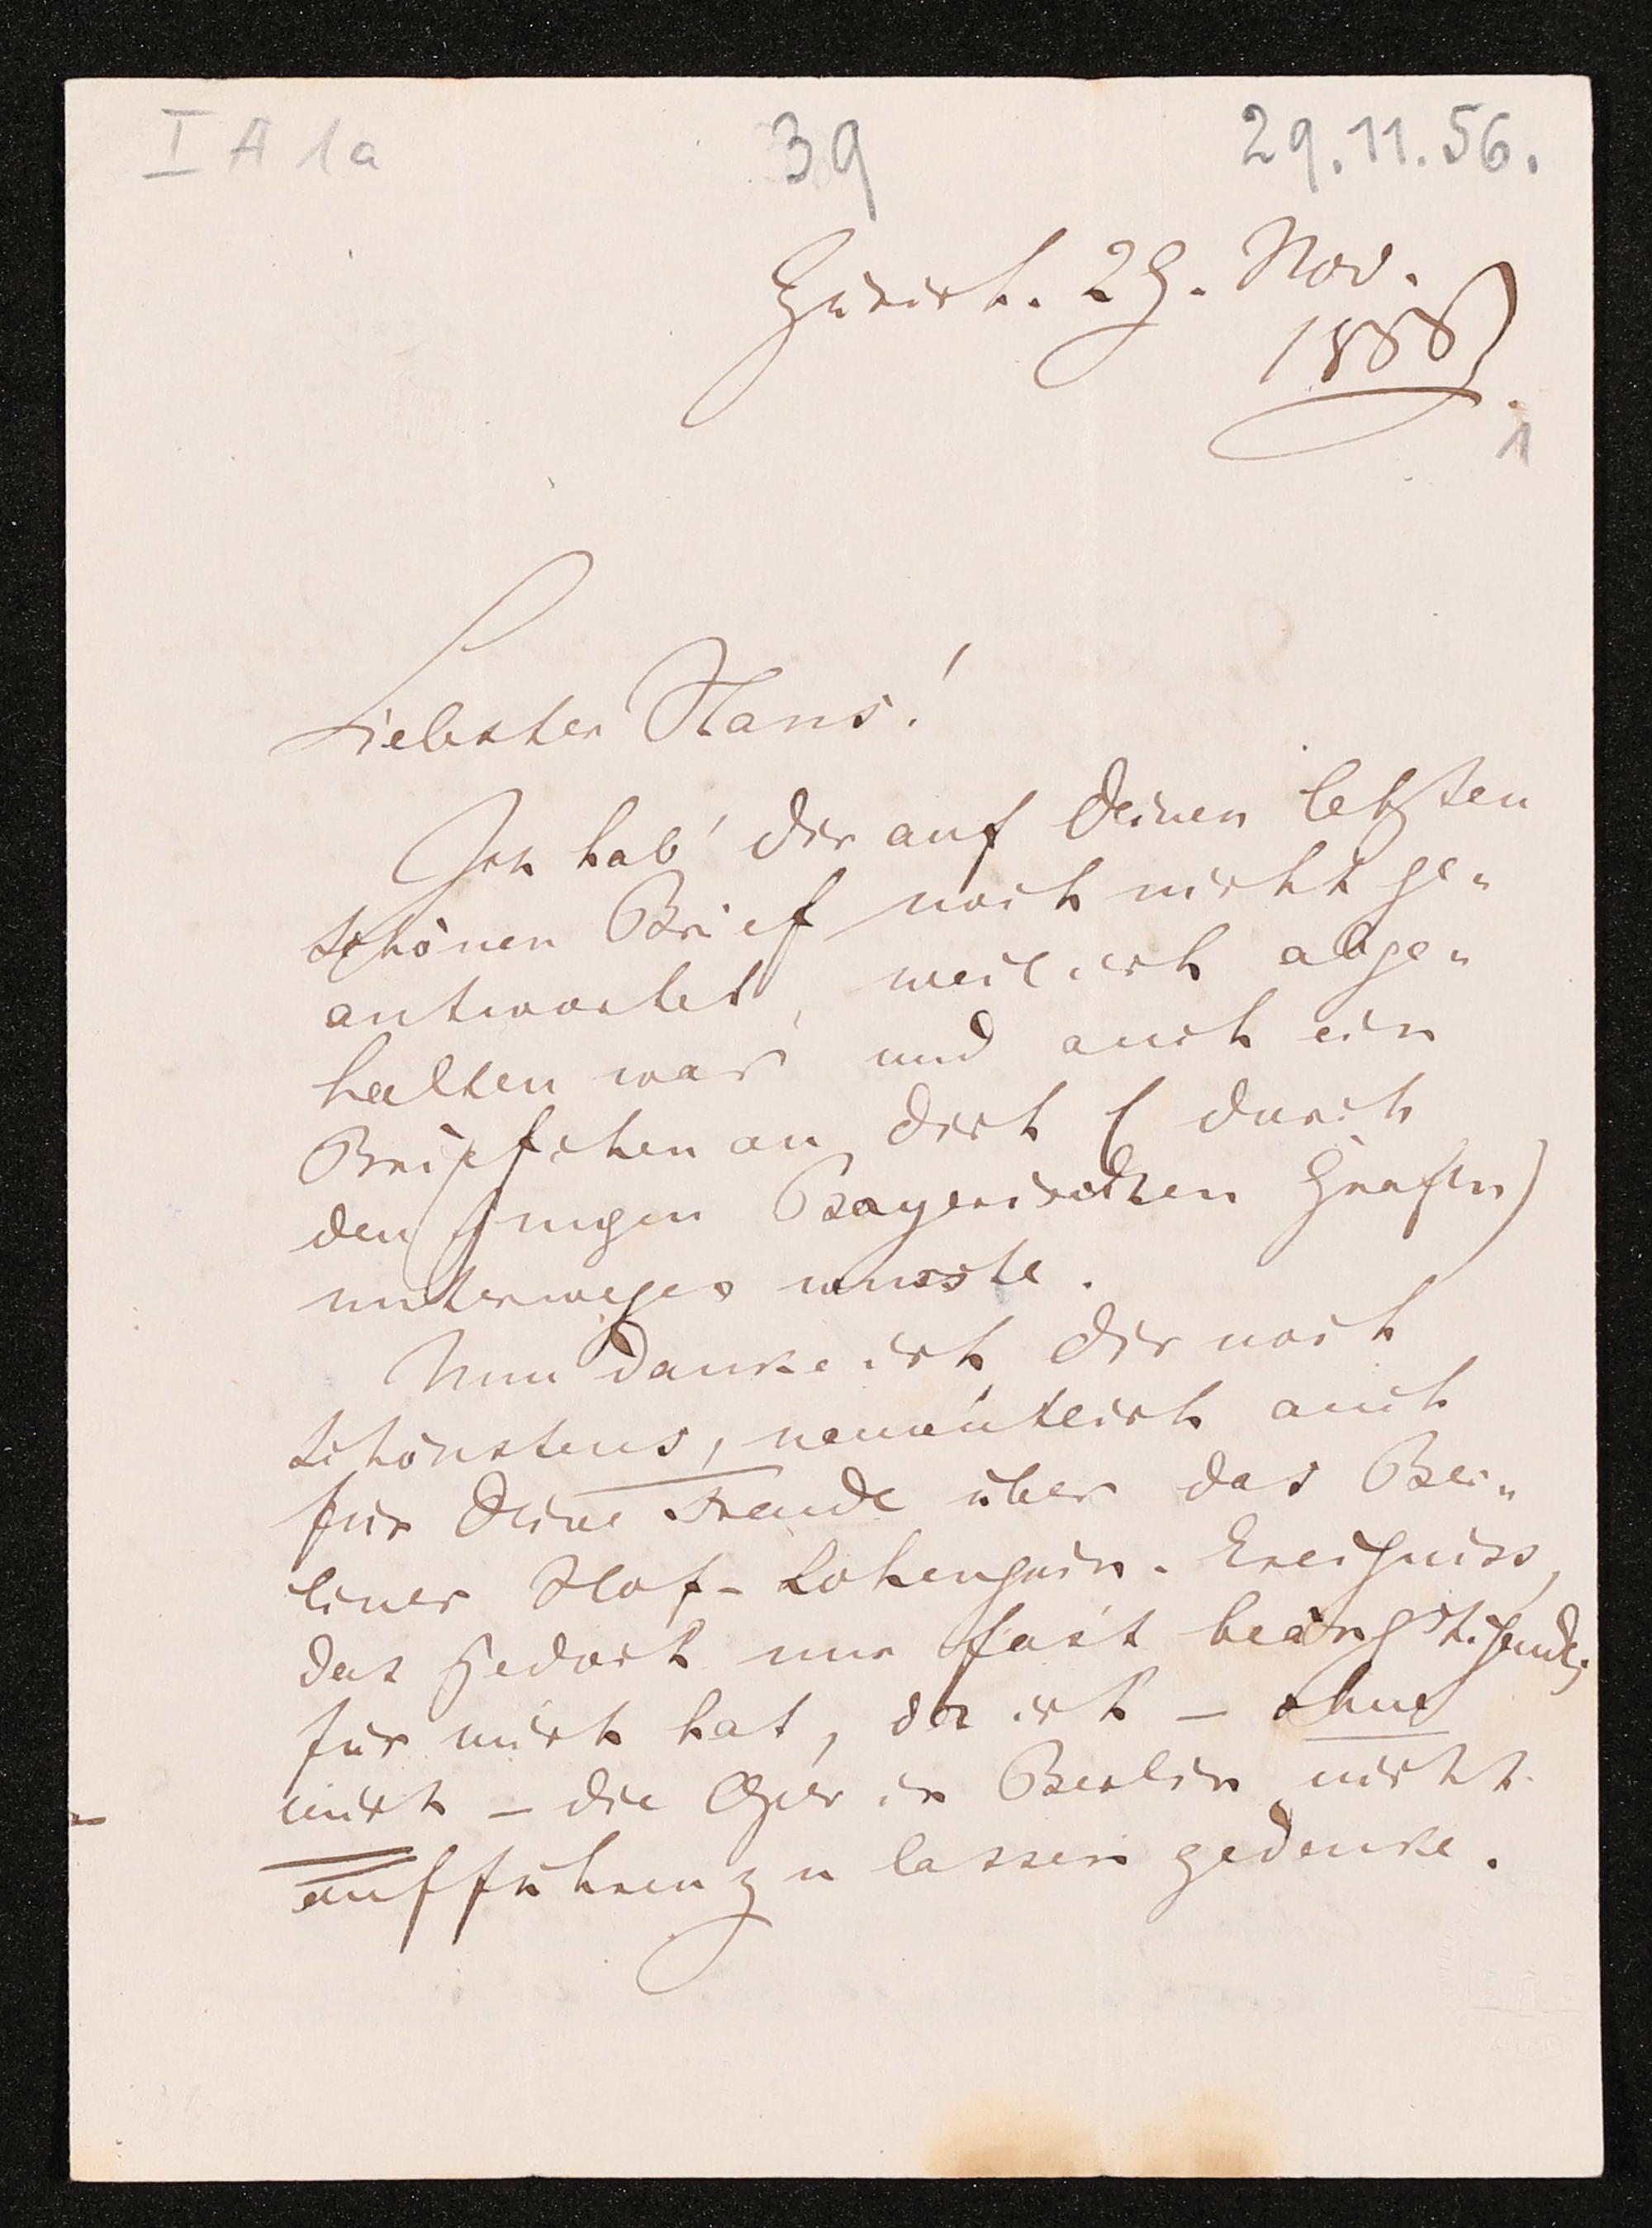 I A 1a 39 29.11.56.
Zürich. 29. Nov.
1856.
1
Liebster Hans!
Ich hab' Dir auf Deinen letzten
schönen Brief noch nicht ge-
antwortet, weil ich abge-
halten war und auch ein
Briefchen an Dich (durch
den jungen Bayerischen Grafen)
unterweges wusste.
Nun danke ich Dir noch
schönstens, namentlich auch
für Deine Freude über das Ber-
liner Hof-Lohengrin-Ereigniss,
das jedoch nur fast beängstigendes
für mich hat, da ich – ohne
mich – die Oper in Berlin nicht
aufführen zu lassen gedenke.